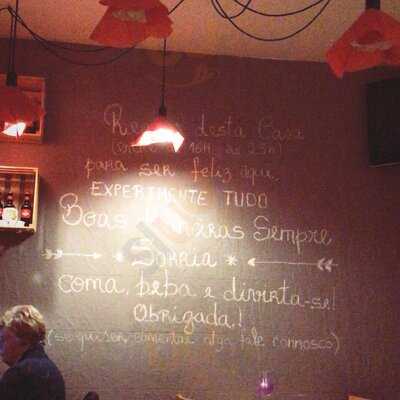 Regras desta Casa
para ser feliz aqui,
EXPERIMENTE TUDO
Boas Maneiras Sempre
SORRIA
coma, beba e divirta-se!
Obrigada!
(se quiser comentar algo fale connosco)